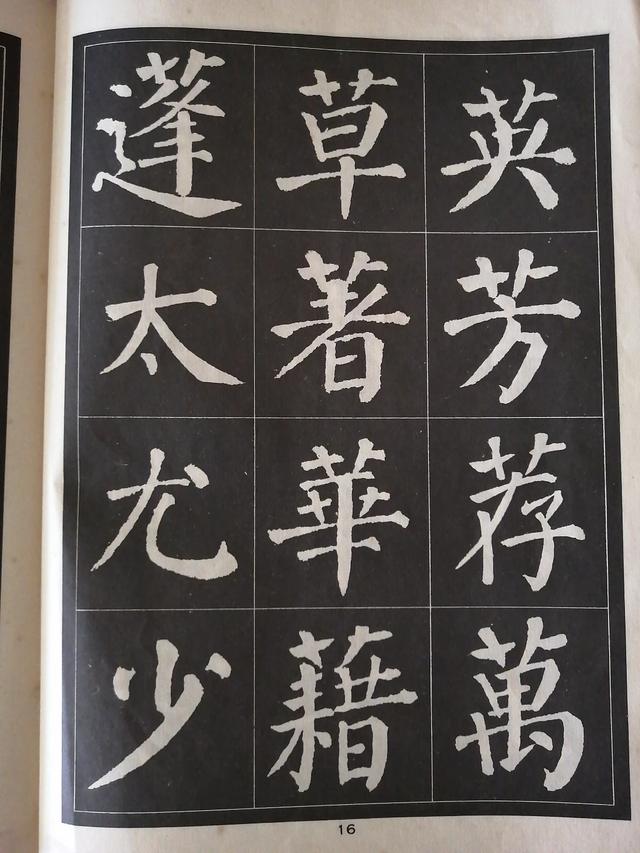 英芳荐萬
草著華藉
蓬太尤少
16